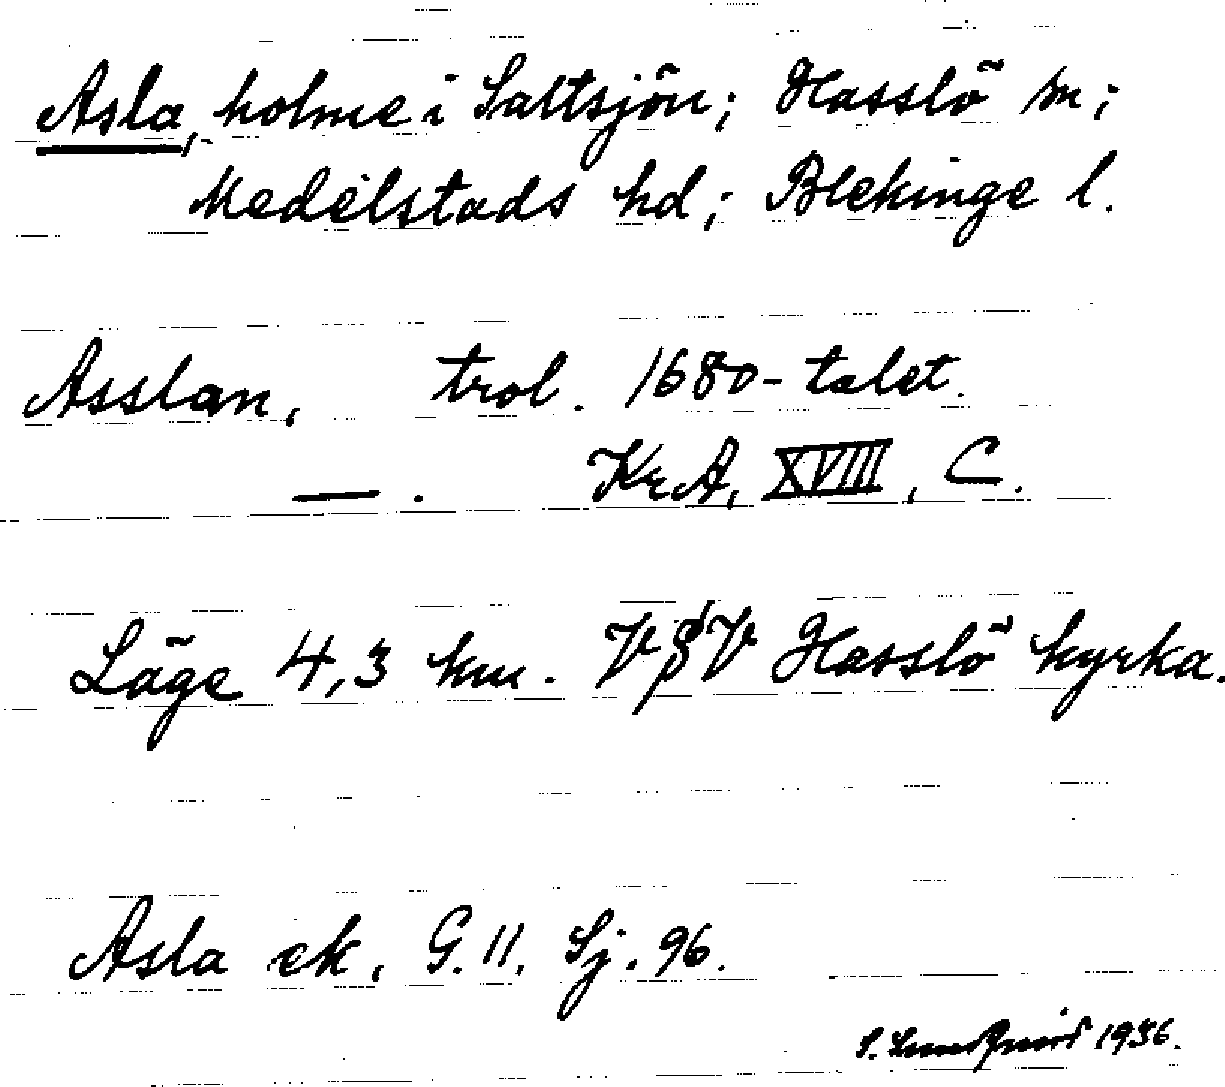 Asla, holme i Saltsjön; Hasslö sn;
Medelstads hd; Blekinge l.
Asslan, trol. 1680-talet.
— . KrA, XVIII, C.
Läge 4,3 km. VSV Hasslö kyrka.
Asla ek, G. 11. Sj. 96.
S. Lundqvist 1936.